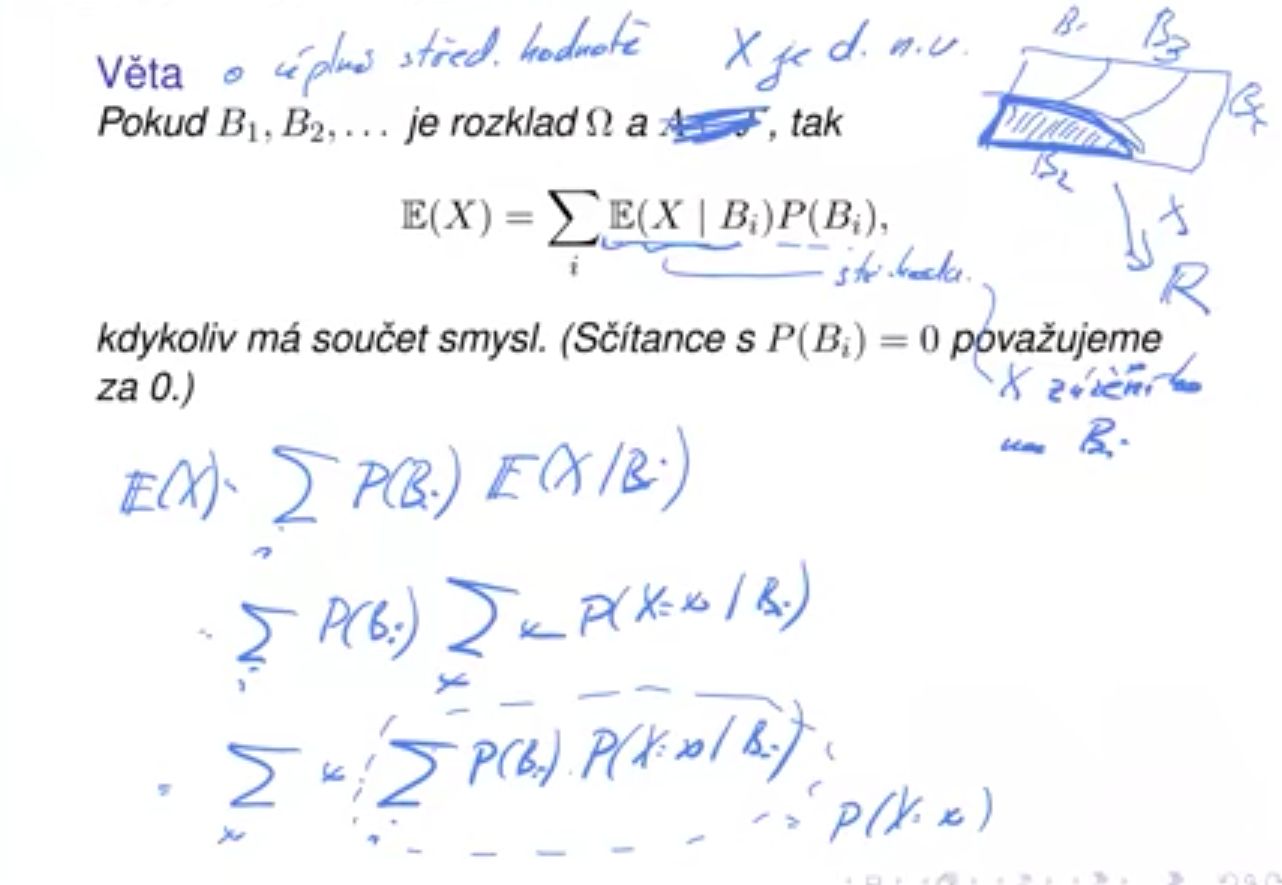 Věta o úplné střed. hodnotě X je d. n. v.
B₁ B₃
Pokud B₁, B₂, … je rozklad Ω a , tak
B₄
B₂
𝔼(X) = ∑ᵢ 𝔼(X | Bᵢ)P(Bᵢ),
X
stř. hodn.
ℝ
kdykoliv má součet smysl. (Sčítance s P(Bᵢ) = 0 považujeme
za 0.)
X zúženého
na Bᵢ
𝔼(X) = ∑ᵢ P(Bᵢ) 𝔼(X | Bᵢ)
= ∑ᵢ P(Bᵢ) ∑ₓ x P(X = x | Bᵢ)
= ∑ₓ x ∑ᵢ P(Bᵢ) · P(X = x | Bᵢ)
= P(X = x)